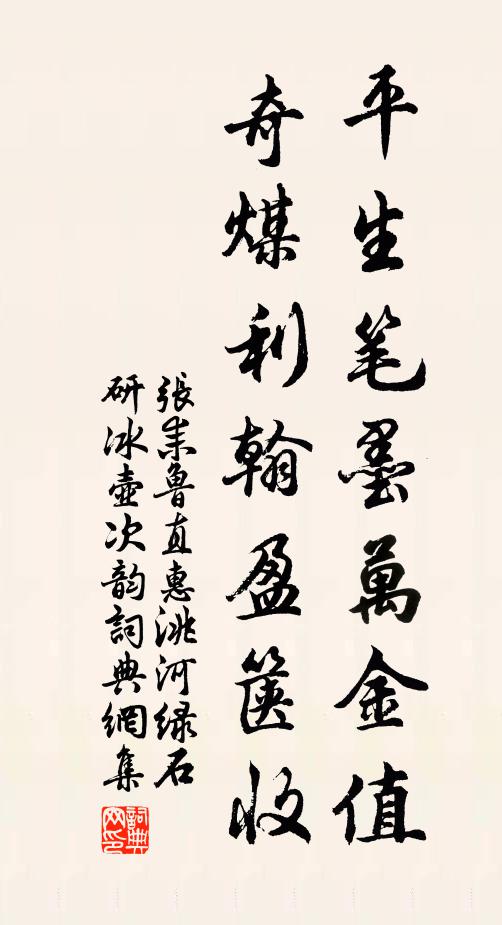 平生笔墨萬金值
奇煤利翰盈篋收
張耒魯直惠洮河緑石
研冰壺次韵詞典網集
詞典网印